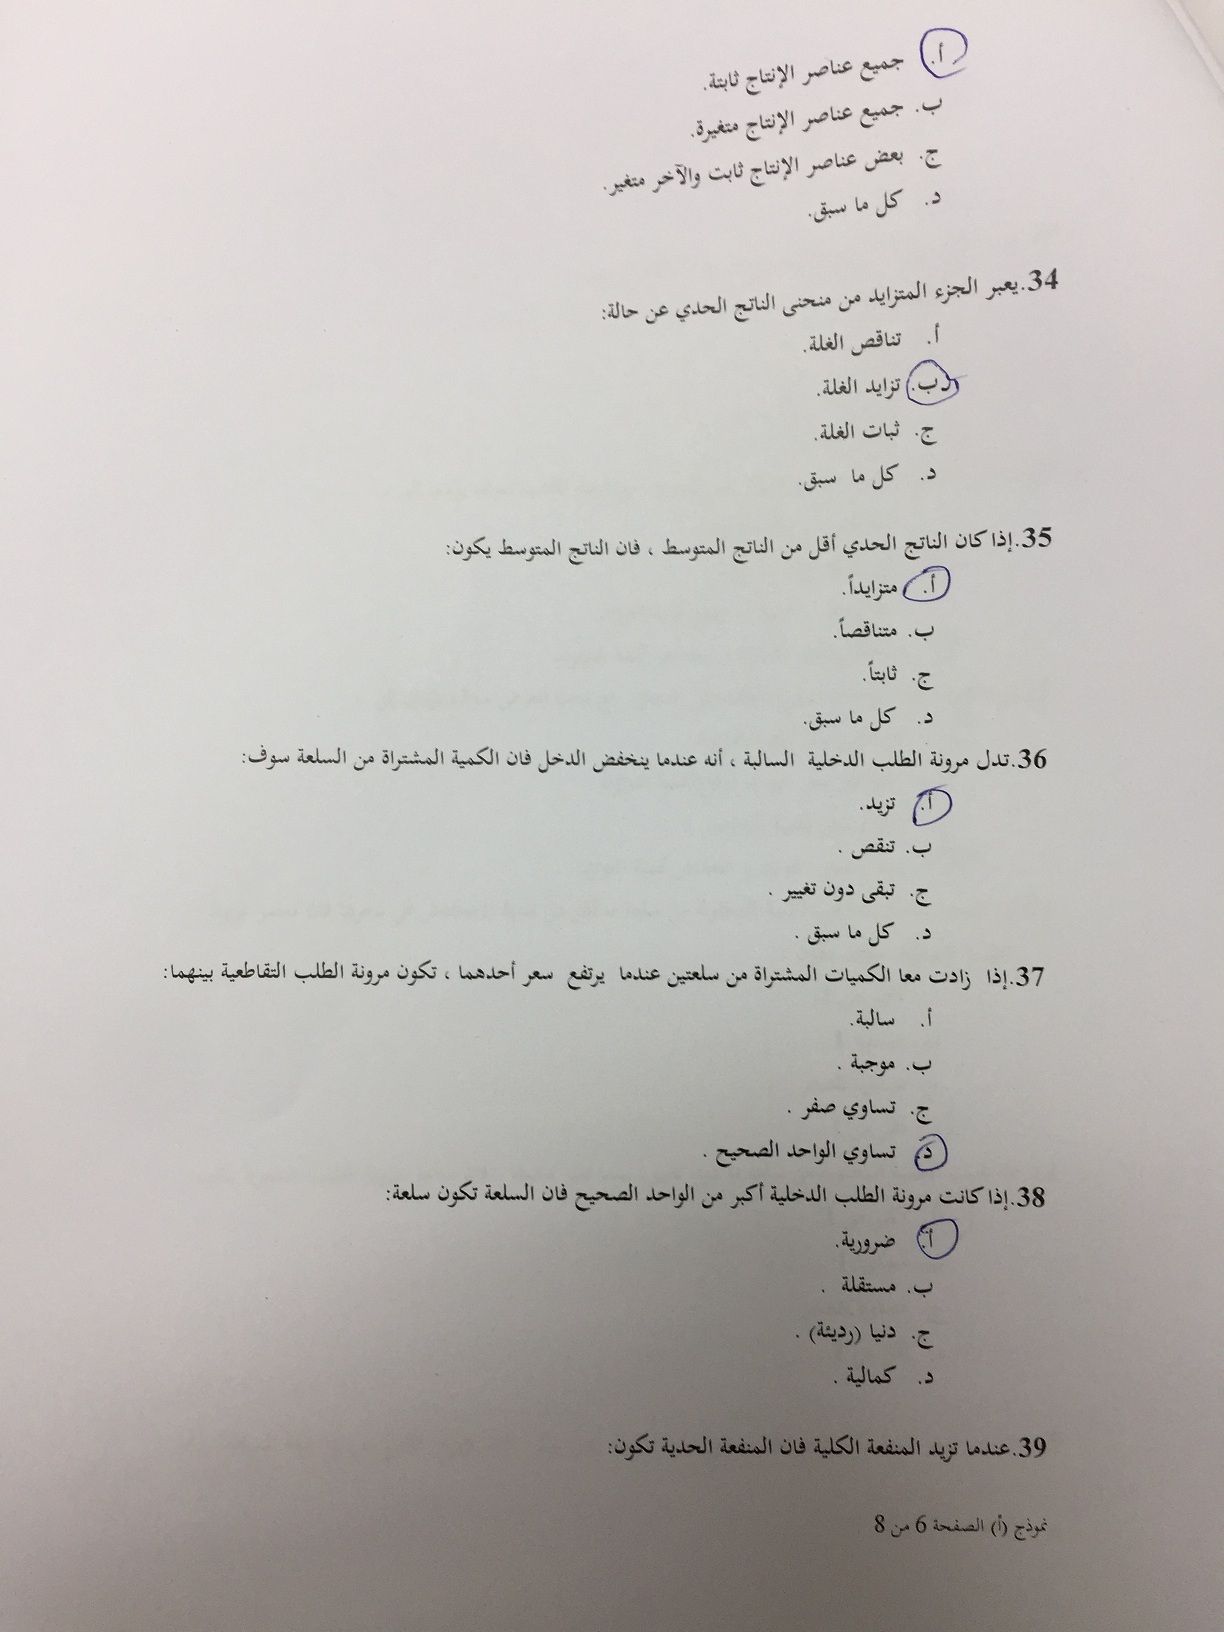 أ. جميع عناصر الإنتاج ثابتة.
ب. جميع عناصر الإنتاج متغيرة.
ج. بعض عناصر الإنتاج ثابت والآخر متغير.
د. كل ما سبق.
34.يعبر الجزء المتزايد من منحنى الناتج الحدي عن حالة:
أ. تناقص الغلة.
ب. تزايد الغلة.
ج. ثبات الغلة.
د. كل ما سبق.
35.إذا كان الناتج الحدي أقل من الناتج المتوسط ، فان الناتج المتوسط يكون:
أ. متزايداً.
ب. متناقصاً.
ج. ثابتاً.
د. كل ما سبق.
36.تدل مرونة الطلب الدخلية السالبة ، أنه عندما ينخفض الدخل فان الكمية المشتراة من السلعة سوف:
أ. تزيد.
ب. تنقص .
ج. تبقى دون تغيير .
د. كل ما سبق .
37.إذا زادت معا الكميات المشتراة من سلعتين عندما يرتفع سعر أحدهما ، تكون مرونة الطلب التقاطعية بينهما:
أ. سالبة.
ب. موجبة .
ج. تساوي صفر .
د. تساوي الواحد الصحيح .
38.إذا كانت مرونة الطلب الدخلية أكبر من الواحد الصحيح فان السلعة تكون سلعة:
أ. ضرورية.
ب. مستقلة .
ج. دنيا (رديئة) .
د. كمالية .
39.عندما تزيد المنفعة الكلية فان المنفعة الحدية تكون:
نموذج (أ) الصفحة 6 من 8